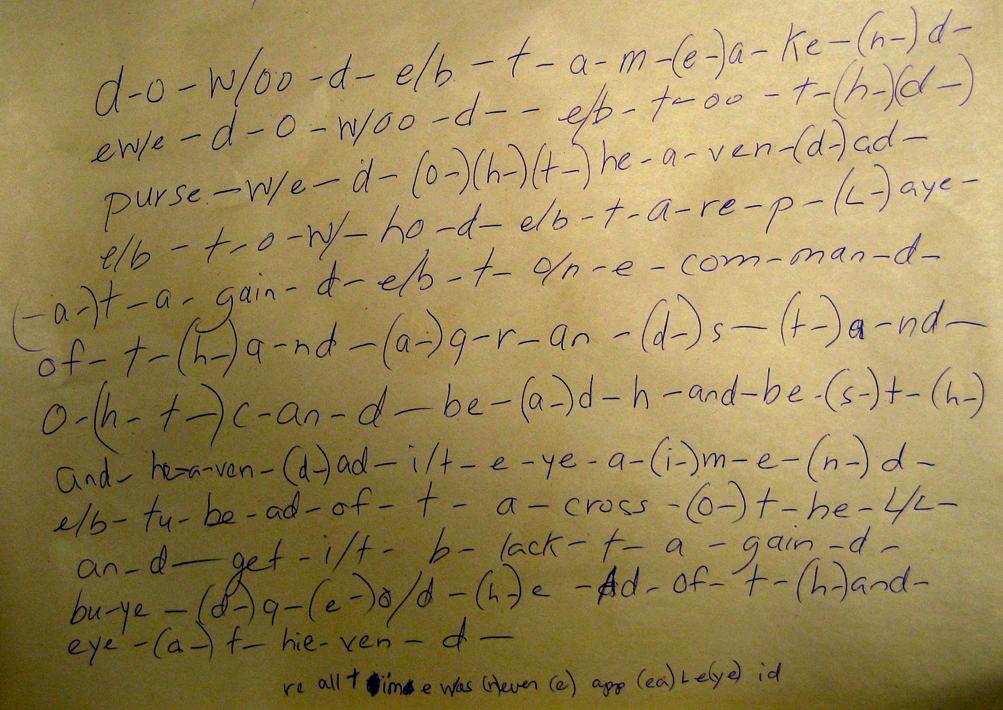 d-o-w/oo-d-e/b-t-a-m-(e-)a-ke-(h-)d-
ew/e-d-o-w/oo-d--e/b-t-oo-t-(h-)(d-)
purse-w/e-d-(o-)(h-)(t-)he-a-ven-(d-)ad-
e/b-t-o-w/-ho-d-e/b-t-a-re-p-(L-)aye-
(-a-)t-a-gain-d-e/b-t-o/n-e-com-man-d-
of-t-(h-)a-nd-(a-)g-r-an-(d-)s-(t-)a-nd-
o-(h-t-)c-an-d-be-(a-)d-h-and-be-(s-)t-(h-)
and-he-a-ven-(d-)ad-i/t-e-ye-a-(i-)m-e-(n-)d-
e/b-tu-be-ad-of-t-a-cross-(o-)t-he-L/L-
an-d-get-i/t-b-lack-t-a-gain-d-
bu-ye-(d-)g-(e-)o/d-(h-)e-Ad-of-t-(h-)and-
eye-(a-)f-hie-ven-d-
re all time was (n)ever (e) app (ea) L e(ye) id